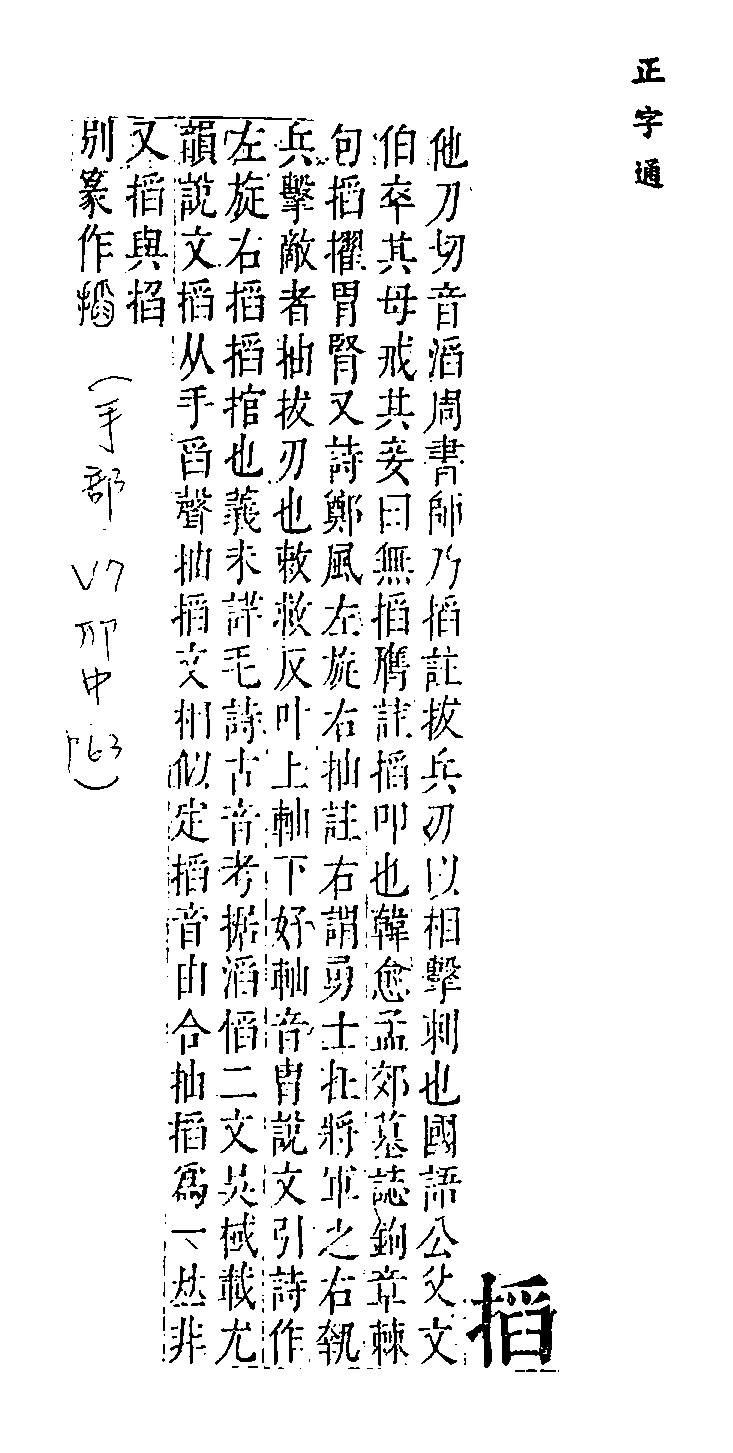 正字通
搯
他刀切音滔周書師乃搯註拔兵刃以相擊刺也國語公父文
伯卒其母戒其妾曰無搯膺註搯叩也韓愈孟郊墓誌鉤章棘
句搯擢胃腎又詩鄭風左旋右抽註右謂勇士在將軍之右執
兵擊敵者抽拔刃也敕救反叶上軸下好軸音胄說文引詩作
左旋右搯搯捾也義未詳毛詩古音考据滔慆二文吴棫載尤
韻說文搯从手舀聲抽搯文相似定搯音由合抽搯爲一𠀤非
又搯與掐
別篆作搯
（手部．
V7
卯中
P63）